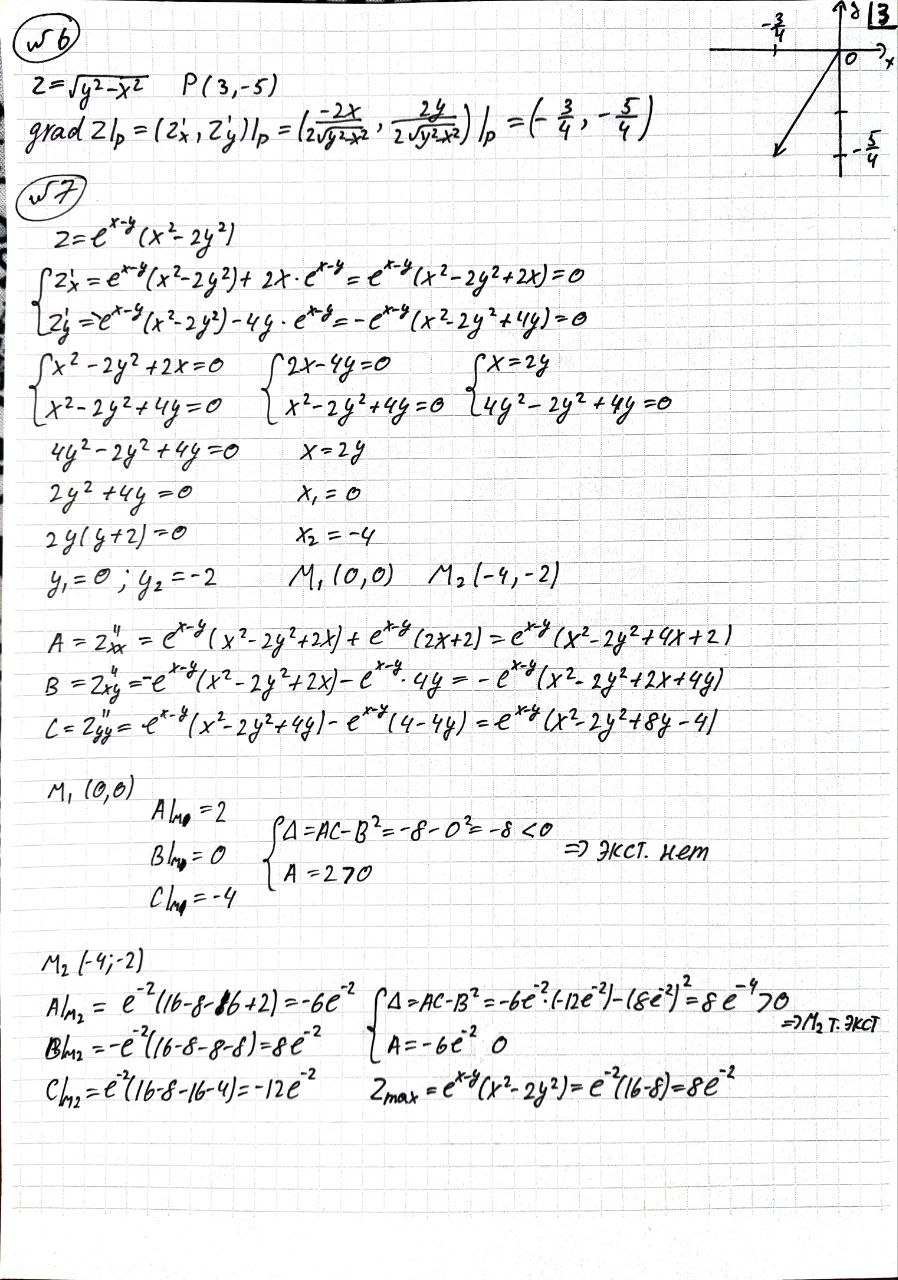 №6
3
z=√(y²-x²) P(3,-5)
grad z|p = (z'x, z'y)|p = (-2x/(2√(y²-x²)), 2y/(2√(y²-x²)))|p = (-3/4, -5/4)
-3/4 y
0 x
-5/4
№7
z=e^(x-y)(x²-2y²)
{z'x = e^(x-y)(x²-2y²)+2x·e^(x-y) = e^(x-y)(x²-2y²+2x)=0
z'y = -e^(x-y)(x²-2y²)-4y·e^(x-y) = -e^(x-y)(x²-2y²+4y)=0
{x²-2y²+2x=0 {2x-4y=0 {x=2y
x²-2y²+4y=0 x²-2y²+4y=0 4y²-2y²+4y=0
4y²-2y²+4y=0 x=2y
2y²+4y=0 x₁=0
2y(y+2)=0 x₂=-4
y₁=0; y₂=-2 M₁(0,0) M₂(-4,-2)
A = z''xx = e^(x-y)(x²-2y²+2x)+e^(x-y)(2x+2) = e^(x-y)(x²-2y²+4x+2)
B = z''xy = -e^(x-y)(x²-2y²+2x)-e^(x-y)·4y = -e^(x-y)(x²-2y²+2x+4y)
C = z''yy = e^(x-y)(x²-2y²+4y)-e^(x-y)(4-4y) = e^(x-y)(x²-2y²+8y-4)
M₁(0,0)
A|м₁ = 2
{Δ=AC-B²=-8-0²=-8<0
B|м₁ = 0 ⇒ экст. нет
A=2>0
C|м₁ = -4
M₂(-4;-2)
A|м₂ = e⁻²(16-8-16+2)=-6e⁻² {Δ=AC-B²=-6e⁻²·(-12e⁻²)-(8e⁻²)²=8e⁻⁴>0
⇒M₂ т. экст
B|м₂ = -e⁻²(16-8-8-8)=8e⁻² A=-6e⁻² 0
C|м₂ = e⁻²(16-8-16-4)=-12e⁻² Zmax = e^(x-y)(x²-2y²)=e⁻²(16-8)=8e⁻²